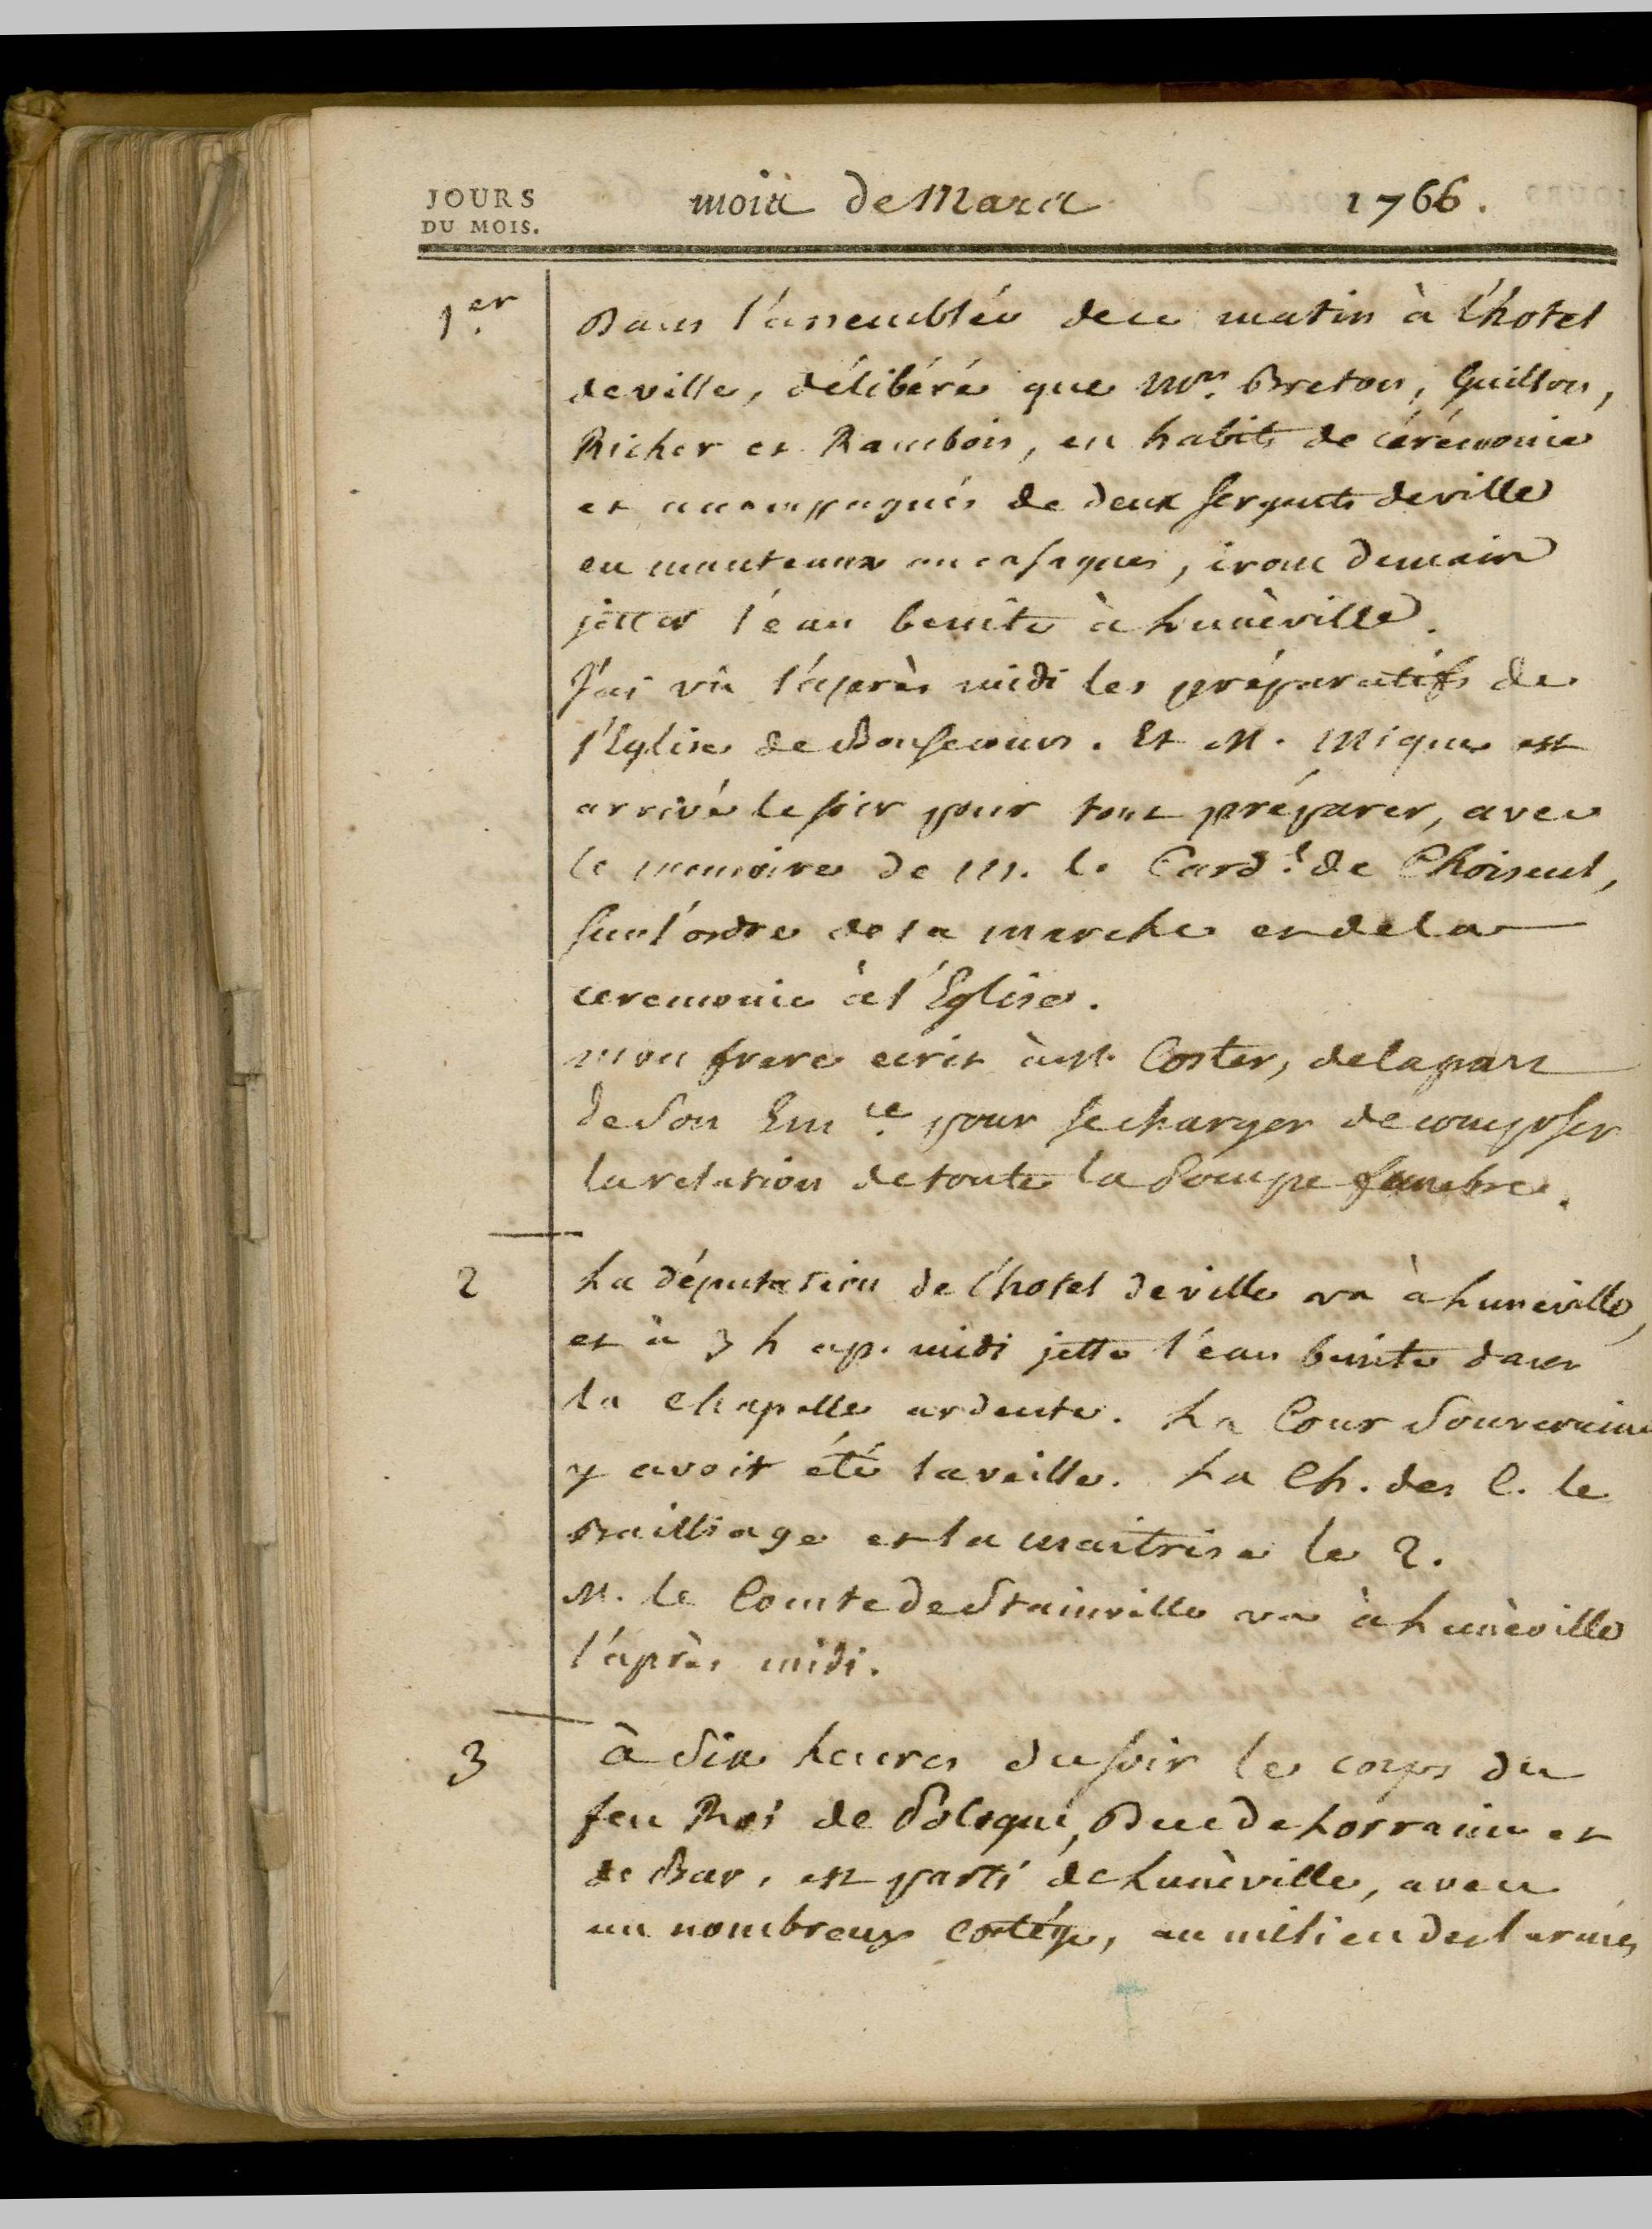 JOURS
DU MOIS.
mois de Mars 1766.
1.er
Dans l'assemblée de ce matin à l'hotel
de ville, délibéré que Mrs. Breton, Guillon,
Richer et Rambois, en habits de cérémonie
et accompagnés de deux sergents de ville
en manteaux ou casaques, iront demain
jetter l'eau benite à Lunéville.
J'ai vû l'après midi les préparatifs de
l'Eglise de Bonsecours. Et M. Mique est
arrivé le soir pour tout préparer, avec
le memoire de M. le Card.l de Choiseul,
sur l'ordre de la marche et de la
ceremonie à l'Eglise.
mon frere ecrit à M. Coster, de la part
de Son Em.ce pour se charger de composer
la relation de toute la Pompe funebre.
2
La députation de l'hotel de ville va à Lunéville,
et à 3 h ap. midi jette l'eau benite dans
la chapelle ardente. La Cour Souveraine
y avoit été la veille. La Ch. des C. le
Bailliage et la maitrise le 2.
M. le Comte de Stainville va à Lunéville
l'après midi.
3
à Six heures du soir le corps du
feu Roi de Pologne, Duc de Lorraine et
de Bar, est parti de Lunéville, avec
un nombreux cortége, au milieu des larmes